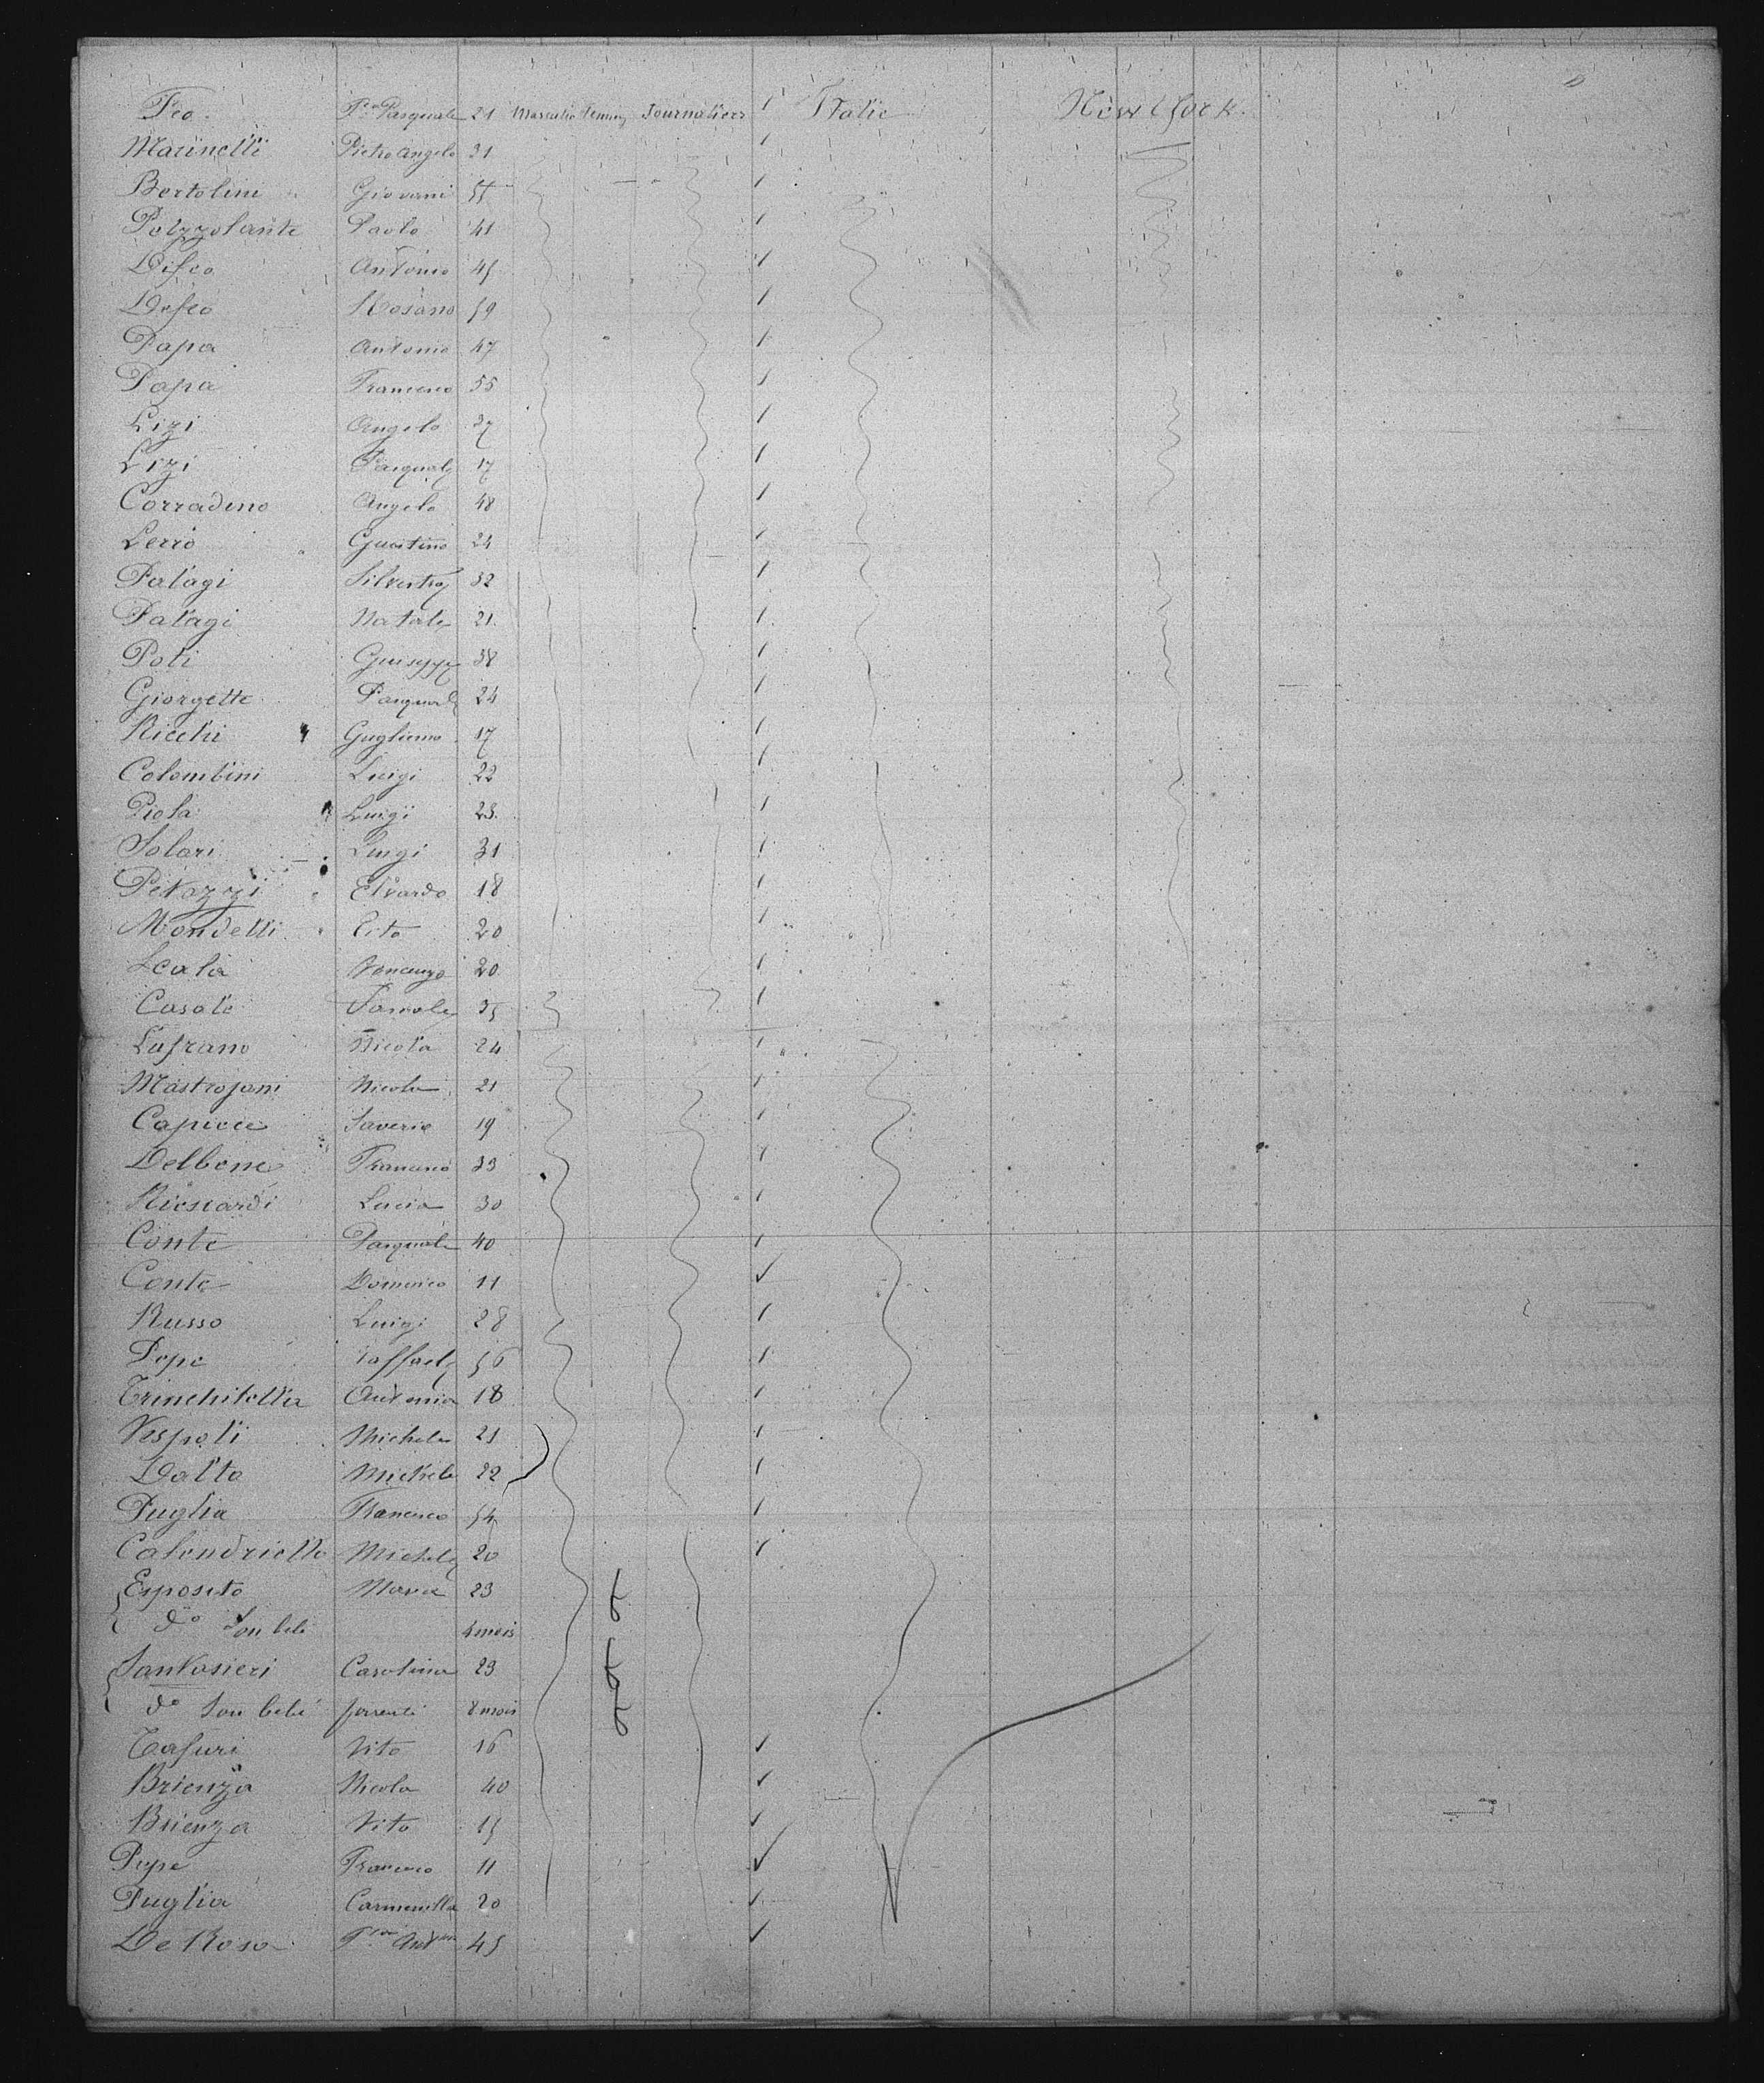 Feo Fco Pasquale 21 Masculin Feminin Journaliers 1 Italie New York
Marinelli Pietro Angelo 31 1
Bertolini Giovani 55 1
Polzzolante Paolo 41 1
Difeo Antonio 45 1
Defeo Rosano 59 1
Papa Antonio 47 1
Papa Francesco 55 1
Lizi Angelo 37 1
Lizi Pasquale 17 1
Corradino Angelo 48 1
Lerro Giustino 24 1
Palagi Silvestre 32 1
Palagi Natale 21 1
Poli Guiseppe 38 1
Giorgette Pasquale 24 1
Ricchi Gugliemo 17 1
Colombini Luigi 22 1
Piola Luigi 23 1
Solari Luigi 31 1
Petazzi Edvardo 18 1
Mondelli Tito 20 1
Scala Vencenzo 20 1
Casale 35 1
Lufrano Nicola 24 1
Mastrojani Nicola 21 1
Capicce Saverio 19 1
Delbene Francesco 33 1
Ricciardi Lucia 30 1
Conte Pasquale 40 1
Conte Domenico 11
Russo Luigi 28 1
Pepe Raffaele 56 1
Trinchitella Antonia 18 1
Vespoli Michele 21 1
Dalto Michele 22 1
Puglia Francesco 54 1
Calendriello Michele 20 1
Esposito Maria 23
do Son bebe 4 mois
Santasieri Carolina 23
do Son bebe 8 mois
Tafuri Vito 16
Brienza Nicola 40
Brienza Vito 15
Pepe Francesco 11
Puglia Carmenella 20
De Rosa 45